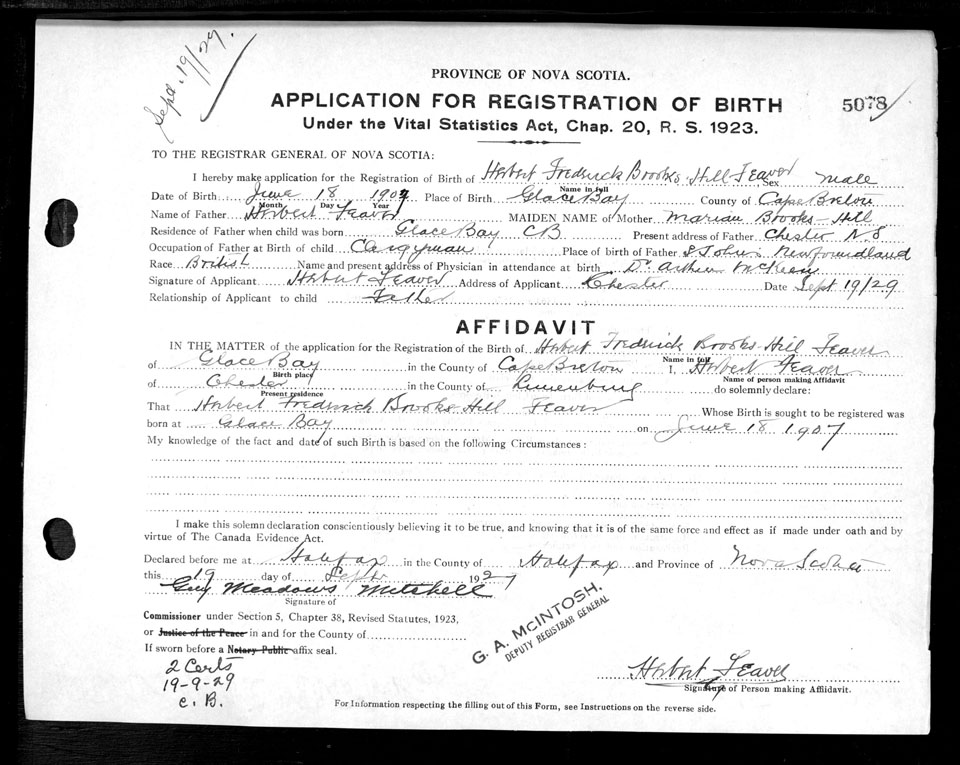 Sept. 19/29.
PROVINCE OF NOVA SCOTIA.
APPLICATION FOR REGISTRATION OF BIRTH
5078
Under the Vital Statistics Act, Chap. 20, R. S. 1923.
TO THE REGISTRAR GENERAL OF NOVA SCOTIA:
I hereby make application for the Registration of Birth of Herbert Fredrick Brooks-Hill Feaver Sex male
Name in full
Date of Birth June 18 1907 Place of Birth Glace Bay County of Cape Breton
Month Day Year
Name of Father Herbert Feaver MAIDEN NAME of Mother Marian Brooks-Hill
Residence of Father when child was born Glace Bay CB Present address of Father Chester N.S
Occupation of Father at Birth of child Clergyman Place of birth of Father St Johns Newfoundland
Race British Name and present address of Physician in attendance at birth Dr Arthur McKeen
Signature of Applicant Herbert Feaver Address of Applicant Chester Date Sept 19/29
Relationship of Applicant to child Father
AFFIDAVIT
IN THE MATTER of the application for the Registration of the Birth of Herbert Fredrick Brooks-Hill Feaver
Name in full
of Glace Bay in the County of Cape Breton I, Herbert Feaver
Birth place Name of person making Affidavit
of Chester in the County of Lunenburg do solemnly declare:
Present residence
That Herbert Fredrick Brooks-Hill Feaver Whose Birth is sought to be registered was
born at Glace Bay on June 18 1907
My knowledge of the fact and date of such Birth is based on the following Circumstances:
I make this solemn declaration conscientiously believing it to be true, and knowing that it is of the same force and effect as if made under oath and by
virtue of The Canada Evidence Act.
Declared before me at Halifax in the County of Halifax and Province of Nova Scotia
this 19 day of Septbr 1927
Guy Meadows Mitchell
Signature of
Commissioner under Section 5, Chapter 38, Revised Statutes, 1923,
or Justice of the Peace in and for the County of
If sworn before a Notary Public affix seal.
G. A. McINTOSH.
DEPUTY REGISTRAR GENERAL
2 Certs
19-9-29
C. B.
Herbert Feaver
Signature of Person making Affidavit.
For Information respecting the filling out of this Form, see Instructions on the reverse side.